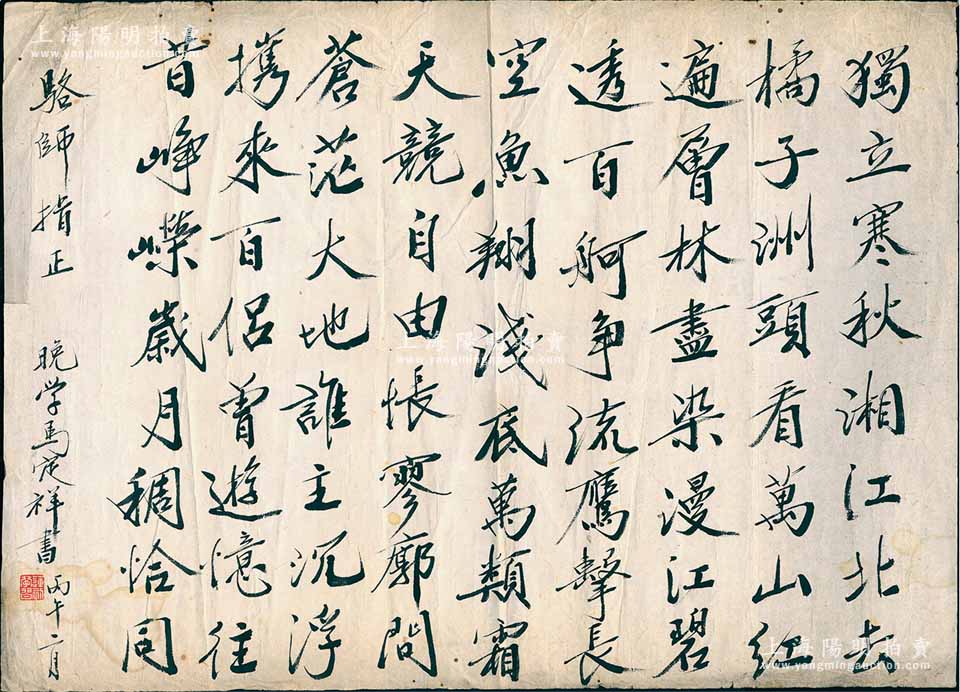 獨立寒秋湘江北去
橘子洲頭看萬山紅
遍層林盡染漫江碧
透百舸争流鷹擊長
空魚翔淺底萬類霜
天競自由悵寥廓問
蒼茫大地誰主沉浮
携來百侶曾遊憶往
昔崢嶸歲月稠恰同
駱師指正
晚学馬定祥書
丙午二月
上海陽明拍賣
www.yangmingauction.com
上海陽明拍賣
www.yangmingauction.com
上海陽明拍賣
www.yangmingauction.com